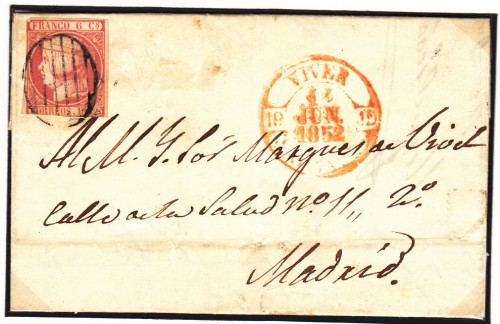 FRANCO 6 Cs
CORREOS. 1852
VIVER
14
JUN.
1852
19 19
Al M. Y. Sor. Marques de
Calle de la Salud no. 11,, 2o.
Madrid.